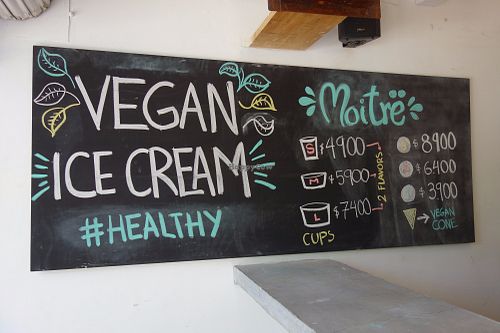 VEGAN
ICE CREAM
#HEALTHY
Moitrë
S $4900
M $5900
L $7400
2 FLAVORS
CUPS
L $8900
M $6400
S $3900
→ VEGAN
CONE